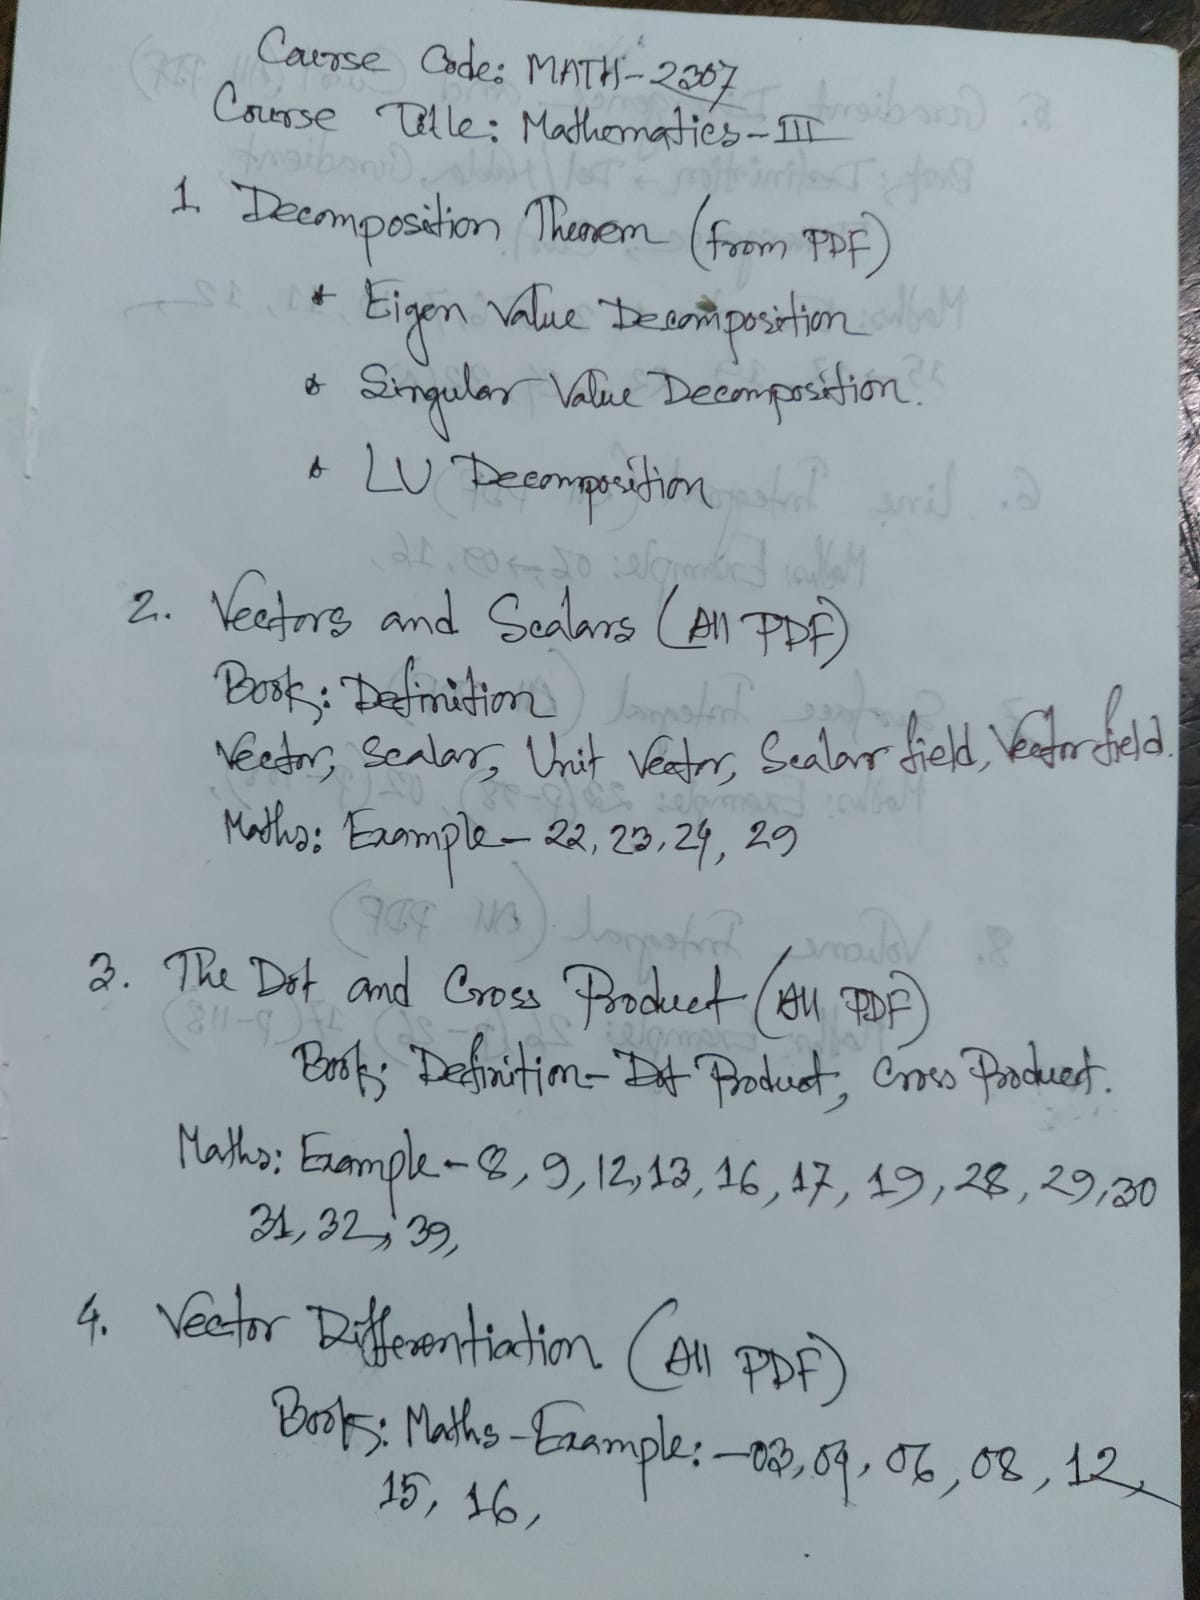 Course Code: MATH-2307
Course Title: Mathematics-III
1 Decomposition Theorem (from PDF)
* Eigen Value Decomposition
* Singular Value Decomposition.
* LU Decomposition
2. Vectors and Scalars (All PDF)
Book: Definition
Vector, Scalar, Unit Vector, Scalar field, Vector field.
Maths: Example- 22, 23, 24, 29
3. The Dot and Cross Product (All PDF)
Book; Definition- Dot Product, Cross Product.
Maths: Example- 8, 9, 12, 13, 16, 17, 19, 28, 29, 30
31, 32, 39,
4. Vector Differentiation (All PDF)
Book: Maths-Example:-03, 04, 06, 08, 12,
15, 16,